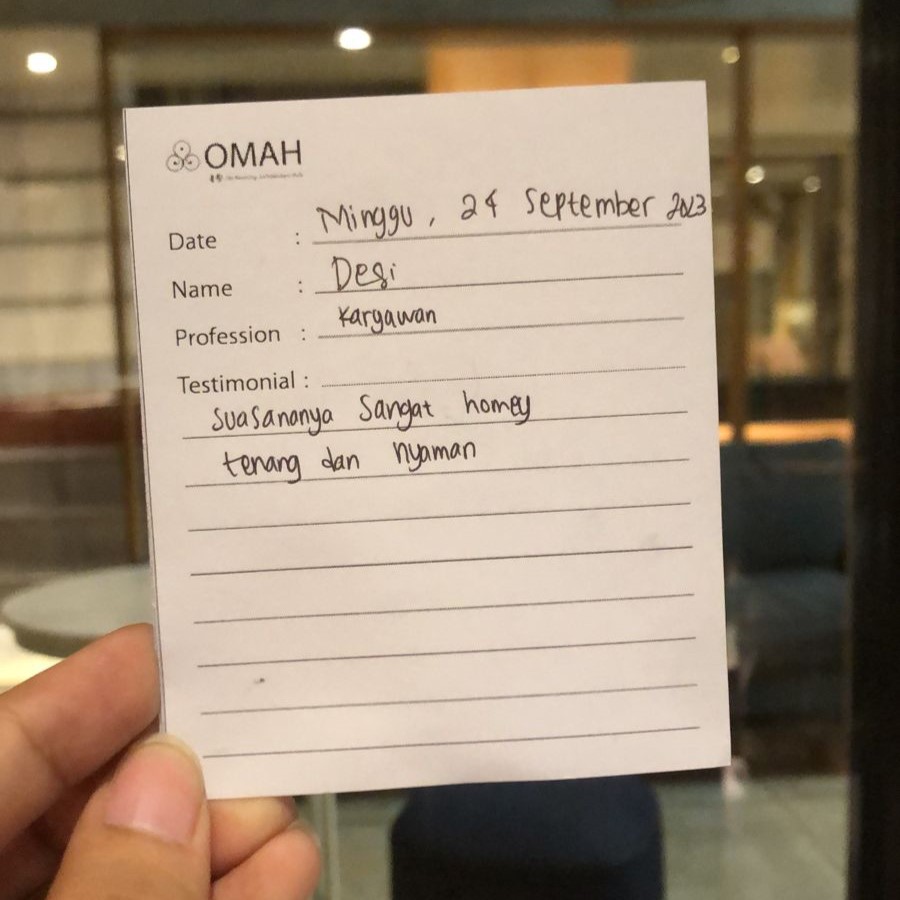 OMAH
Date : Minggu, 24 September 2023
Name : Desi
Profession : Karyawan
Testimonial :
Suasananya sangat homey
tenang dan nyaman